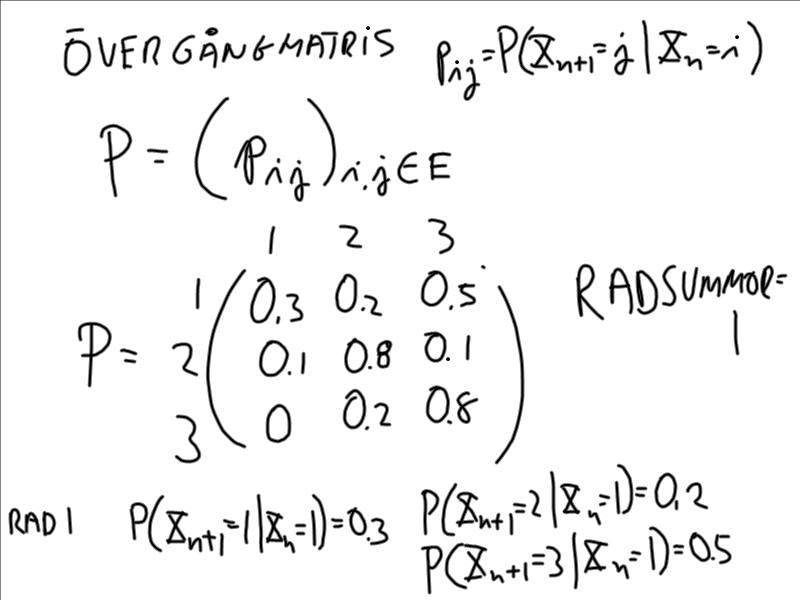 ÖVERGÅNGMATRIS p_ij=P(X_n+1=j|X_n=i)
P=(p_ij)_i,j∈E
1 2 3
1 0.3 0.2 0.5
P= 2 0.1 0.8 0.1
3 0 0.2 0.8
RADSUMMOR=
1
RAD 1 P(X_n+1=1|X_n=1)=0.3 P(X_n+1=2|X_n=1)=0,2
P(X_n+1=3|X_n=1)=0.5